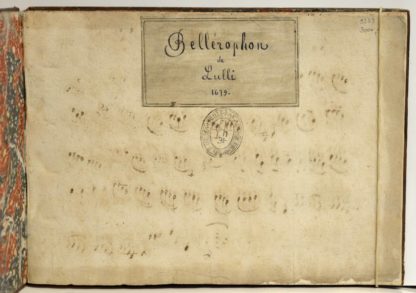 Bellérophon
de
Lulli
1679.